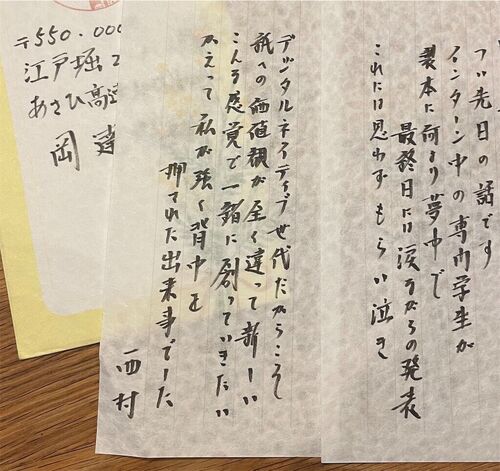 つい先日の話です
インターン中の専門学生が
製本に何より夢中で
最終日には涙ながらの発表
これには思わずもらい泣き
デジタルネイティブ世代だからこそ
紙への価値観が全く違って新しい
こんな感覚で一緒に創っていきたい
かえって私が強く背中を
押された出来事でした
西村
〒550-000
江戸堀2
あさひ高速
岡 達